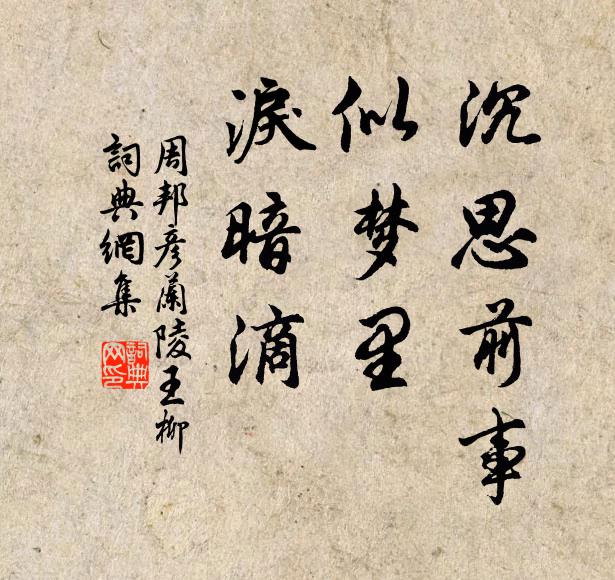 沉思前事
似梦里
淚暗滴
周邦彦蘭陵王柳
詞典網集
詞典
网印